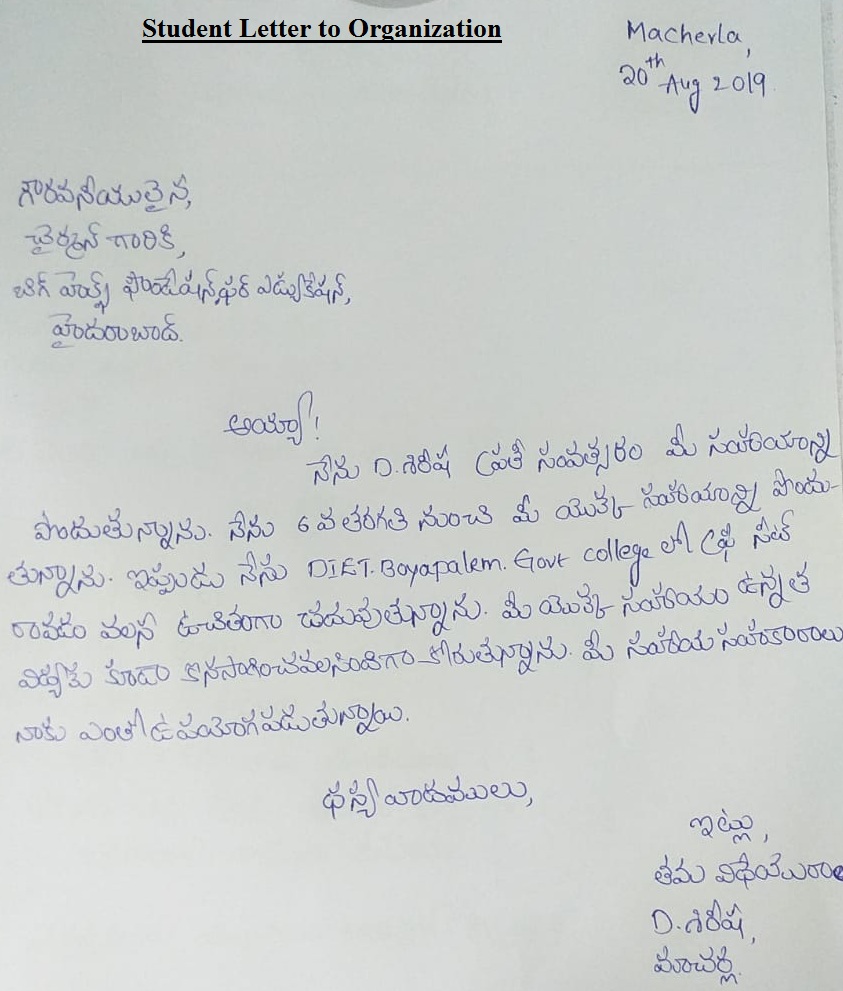 Student Letter to Organization
Macherla,
20th Aug 2019.
గౌరవనీయులైన,
ఛైర్మన్ గారికి,
బిగ్ హెల్ప్ ఫౌండేషన్ ఫర్ ఎడ్యుకేషన్,
హైదరాబాద్.
అయ్యా!
నేను D.శిరీష ప్రతీ సంవత్సరం మీ సహాయాన్ని
పొందుతున్నాను. నేను 6 వ తరగతి నుంచి మీ యొక్క సహాయాన్ని పొందు-
తున్నాను. ఇప్పుడు నేను DIET. Boyapalem. Govt college లో ఫ్రీ సీట్
రావడం వలన ఉచితంగా చదువుతున్నాను. మీ యొక్క సహాయం ఉన్నత
విద్యకు కూడా కొనసాగించవలసిందిగా కోరుతున్నాను. మీ సహాయ సహకారాలు
నాకు ఎంతో ఉపయోగపడుతున్నాయి.
ధన్యవాదములు,
ఇట్లు,
తమ విధేయురాలు
D.శిరీష,
మాచర్ల.